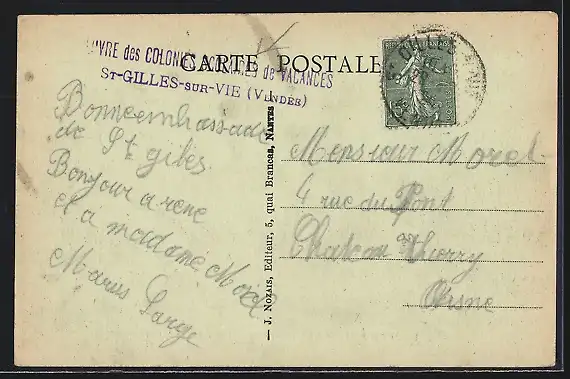 ŒUVRE des COLONIES SCOLAIRES de VACANCES
CARTE POSTALE
St-GILLES-SUR-VIE (VENDÉE)
REPUBLIQUE FRANÇAISE
Bonne embrassade
de St giles
Bonjour a rene
et a madame Morel
Marus
Mensiour Morel
4 rue du Pont
Chateau Thierry
Aisne
— J. NOZAIS, Editeur, 5, quai Brancas, NANTES